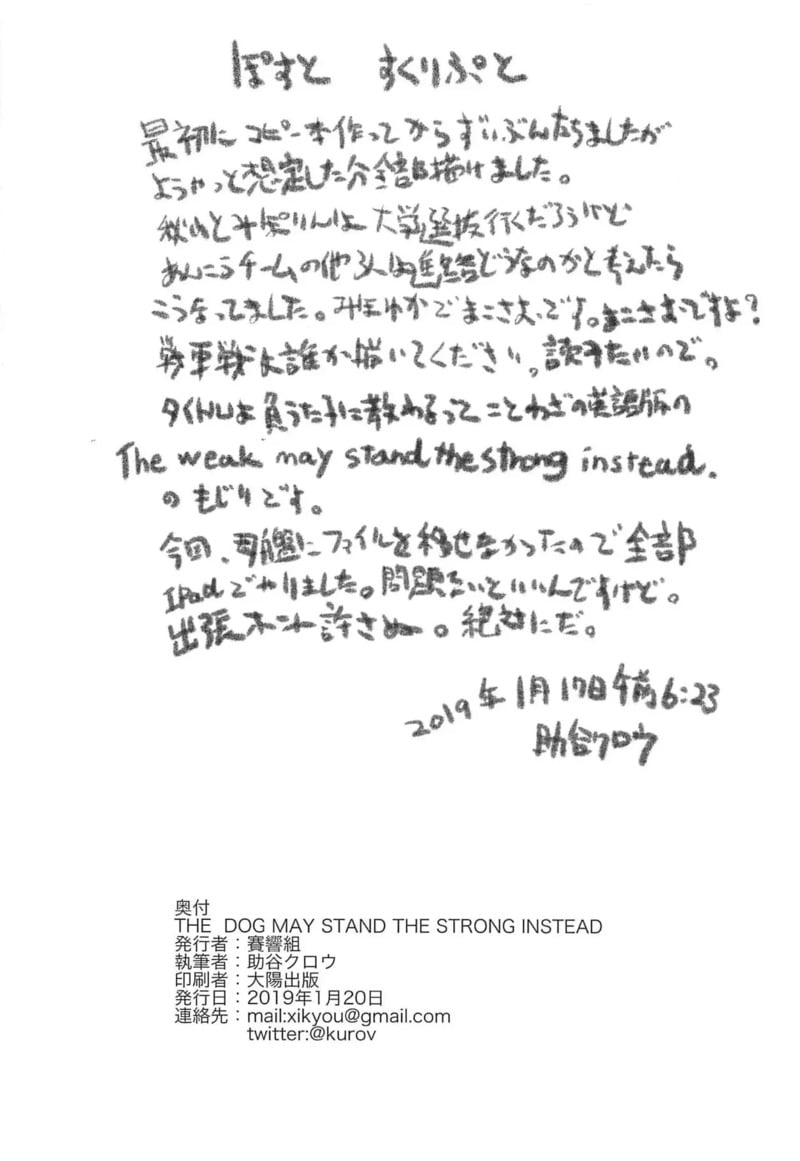 ぽすと すくりぷと
最初にコピー本作ってからずいぶんたちましたが
ようやっと想定した分全部描けました。
秋山とみぽりんは大学選抜行くだろうけど
あんこうチームの他3人は進路どうなのかと考えたら
こうなってました。みほゆかでまこさおです。まこさおですよ?
戦車戦は誰か描いてください。読みたいので。
タイトルは負うた子に教わるってことわざの英語版の
The weak may stand the strong instead.
のもじりです。
今回、母艦にファイルを移せなかったので全部
IPadでやりました。問題ないといいんですけど。
出張ホント許さぬー。絶対にだ。
2019年1月17日午前6:23
助谷クロウ
奥付
THE DOG MAY STAND THE STRONG INSTEAD
発行者:賽響組
執筆者:助谷クロウ
印刷者:大陽出版
発行日:2019年1月20日
連絡先:mail:xikyou@gmail.com
twitter:@kurov